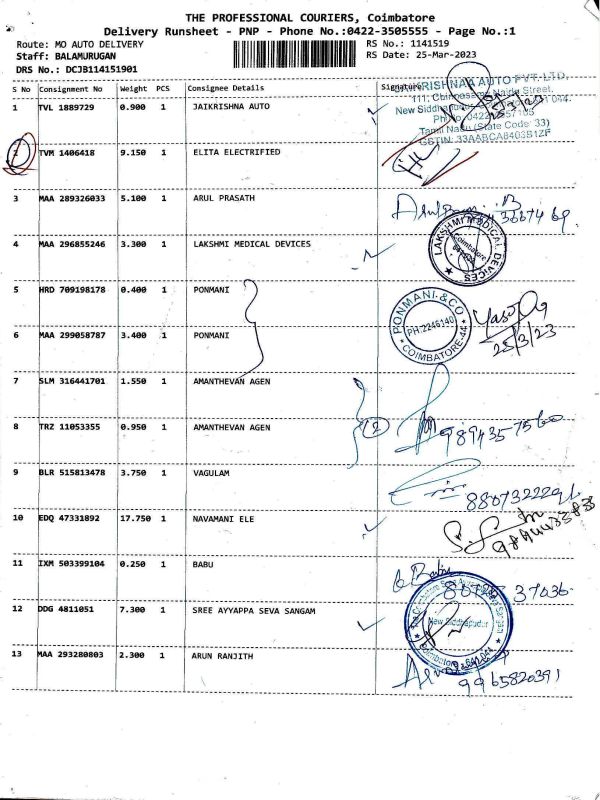 THE PROFESSIONAL COURIERS, Coimbatore
Delivery Runsheet - PNP - Phone No.:0422-3505555 - Page No.:1
Route: MO AUTO DELIVERY RS No.: 1141519
Staff: BALAMURUGAN RS Date: 25-Mar-2023
DRS No.: DCJB114151901
S No Consignment No Weight PCS Consignee Details Signature
KRISHNAA AUTO PVT. LTD.,
1 TVL 1889729 0.900 1 JAIKRISHNA AUTO
New Siddhapudur
Tamil Nadu (State Code: 33)
GSTIN: 33AABCA8403B1ZF
25/3/23
2 TVM 1406418 9.150 1 ELITA ELECTRIFIED
3 MAA 289326033 5.100 1 ARUL PRASATH
4 MAA 296855246 3.300 1 LAKSHMI MEDICAL DEVICES
LAKSHMI MEDICAL DEVICES
Coimbatore
5 HRD 709198178 0.400 1 PONMANI
PONMANI & CO
PH:2246140
COIMBATORE-44
25/3/23
6 MAA 299058787 3.400 1 PONMANI
7 SLM 316441701 1.550 1 AMANTHEVAN AGEN
8 TRZ 11053355 0.950 1 AMANTHEVAN AGEN
2
9894357560
9 BLR 515813478 3.750 1 VAGULAM
10 EDQ 47331892 17.750 1 NAVAMANI ELE
11 IXM 503399104 0.250 1 BABU
Babu
12 DDG 4811051 7.300 1 SREE AYYAPPA SEVA SANGAM
New Siddhapudur
13 MAA 293280803 2.300 1 ARUN RANJITH
9965820391